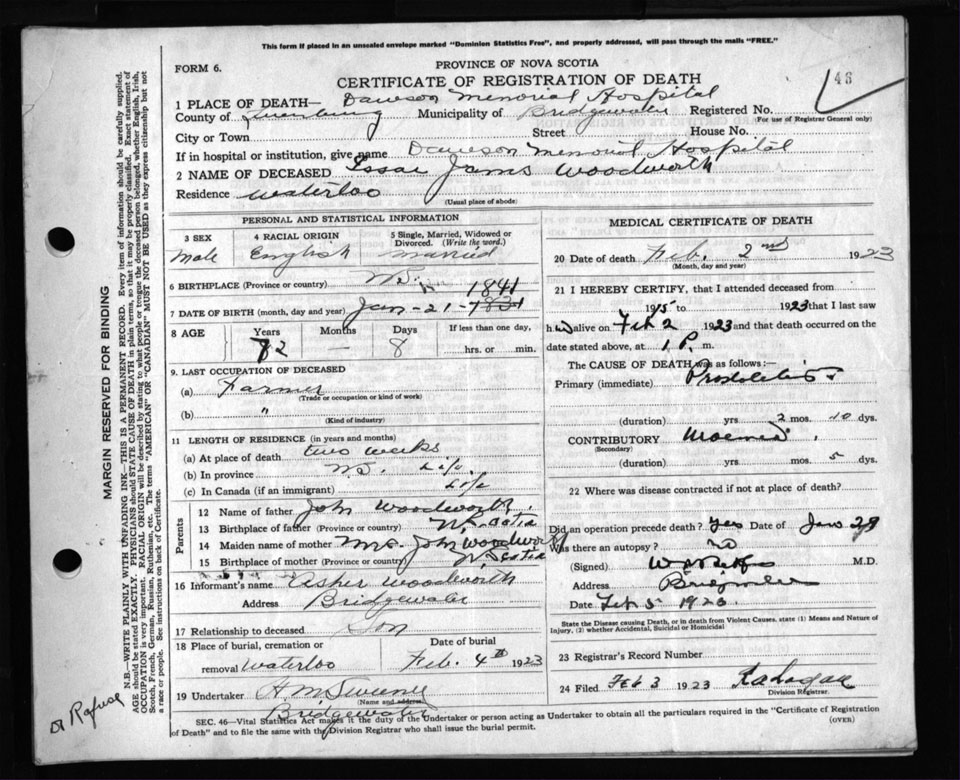 This form if placed in an unsealed envelope marked "Dominion Statistics Free", and properly addressed, will pass through the mails "FREE."
FORM 6.
PROVINCE OF NOVA SCOTIA
CERTIFICATE OF REGISTRATION OF DEATH
48
1 PLACE OF DEATH— Dawson Memorial Hospital
County of Lunenburg Municipality of Bridgewater Registered No.
(For use of Registrar General only)
City or Town Street House No.
If in hospital or institution, give name Dawson Memorial Hospital
2 NAME OF DECEASED Issac James Woodworth
Residence Waterloo
(Usual place of abode)
PERSONAL AND STATISTICAL INFORMATION
3 SEX 4 RACIAL ORIGIN 5 Single, Married, Widowed or Divorced. (Write the word.)
Male English Married
6 BIRTHPLACE (Province or country) N.S.
1841
7 DATE OF BIRTH (month, day and year) Jan - 21 -
8 AGE Years Months Days If less than one day,
82 — 8 hrs. or min.
9. LAST OCCUPATION OF DECEASED
(a) Farmer
(Trade or occupation or kind of work)
(b) "
(Kind of industry)
11 LENGTH OF RESIDENCE (in years and months)
(a) At place of death two weeks
(b) In province N.S. Life
(c) In Canada (if an immigrant) Life
Parents
12 Name of father John Woodworth
13 Birthplace of father (Province or country) N. Scotia
14 Maiden name of mother Mrs. John Woodworth
15 Birthplace of mother (Province or country) N. Scotia
16 Informant's name Asher Woodworth
Address Bridgewater
17 Relationship to deceased Son
18 Place of burial, cremation or Date of burial
removal Waterloo Feb. 4th 1923
19 Undertaker H McSweeney
(Name and address)
Bridgewater
MEDICAL CERTIFICATE OF DEATH
20 Date of death Feb. 2nd 1923
(Month, day and year)
21 I HEREBY CERTIFY, that I attended deceased from
1915 to 1923 that I last saw
h alive on Feb 2 1923 and that death occurred on the
date stated above, at 1 P. m.
The CAUSE OF DEATH was as follows:—
Primary (immediate)
(duration) yrs 2 mos. 10 dys.
CONTRIBUTORY
(Secondary)
(duration) yrs mos. 5 dys.
22 Where was disease contracted if not at place of death?
Did an operation precede death? Yes Date of Jan 29
Was there an autopsy? no
(Signed) M.D.
Address Bridgewater
Date Feb 5 1923.
State the Disease causing Death, or in death from Violent Causes, state (1) Means and Nature of Injury, (2) whether Accidental, Suicidal or Homicidal
23 Registrar's Record Number
24 Filed Feb 3 1923
Division Registrar
SEC. 46—Vital Statistics Act makes it the duty of the Undertaker or person acting as Undertaker to obtain all the particulars required in the "Certificate of Registration
of Death" and to file the same with the Division Registrar who shall issue the burial permit.
(OVER)
MARGIN RESERVED FOR BINDING
N.B.—WRITE PLAINLY WITH UNFADING INK—THIS IS A PERMANENT RECORD. Every item of information should be carefully supplied.
AGE should be stated EXACTLY. PHYSICIANS should STATE CAUSE OF DEATH in plain terms, so that it may be properly classified. Exact statement of
OCCUPATION is very important. RACIAL ORIGIN will be described by stating to what people or tongue the deceased person belonged, whether English, Irish,
Scotch, French, German, Russian, Ruthenian, etc. The terms "AMERICAN" OR "CANADIAN" MUST NOT BE USED as they express citizenship but not
a race or people. See instructions on back of Certificate.